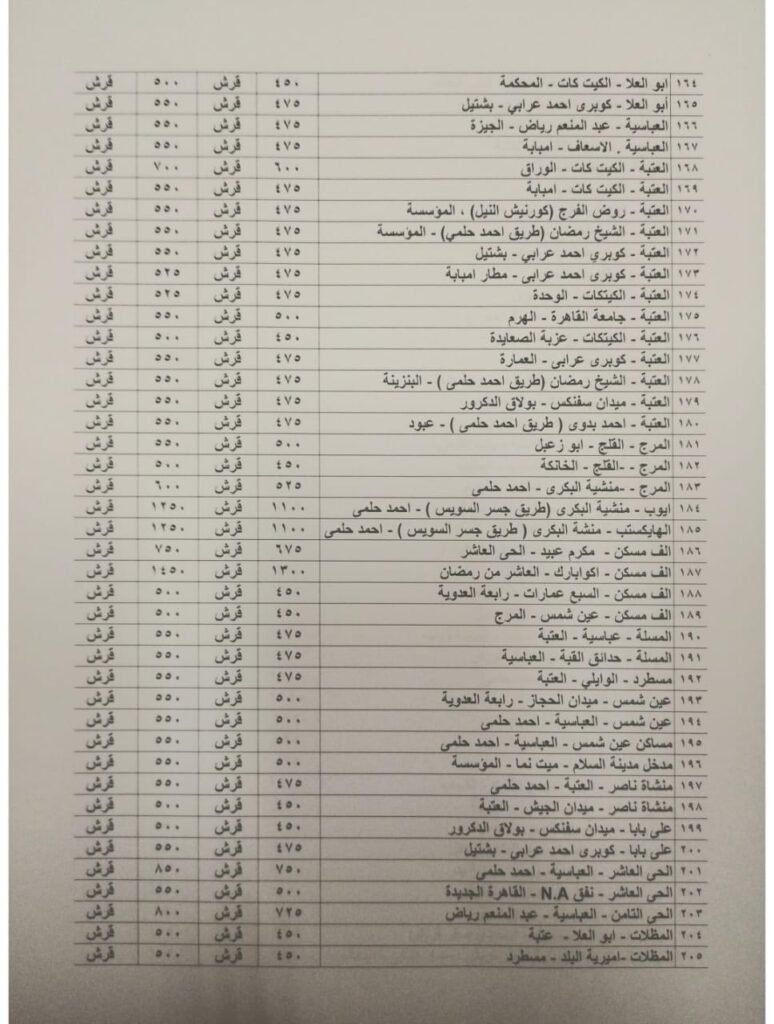 ١٦٤ ابو العلا - الكيت كات - المحكمة ٤٥٠ قرش ٥٠٠ قرش
١٦٥ أبو العلا - كوبرى احمد عرابي - بشتيل ٤٧٥ قرش ٥٥٠ قرش
١٦٦ العباسية - عبد المنعم رياض - الجيزة ٤٧٥ قرش ٥٥٠ قرش
١٦٧ العباسية . الاسعاف - امبابة ٤٧٥ قرش ٥٥٠ قرش
١٦٨ العتبة - الكيت كات - الوراق ٦٠٠ قرش ٧٠٠ قرش
١٦٩ العتبة - الكيت كات - امبابة ٤٧٥ قرش ٥٥٠ قرش
١٧٠ العتبة - روض الفرج (كورنيش النيل) ، المؤسسة ٤٧٥ قرش ٥٥٠ قرش
١٧١ العتبة - الشيخ رمضان (طريق احمد حلمي) - المؤسسة ٤٧٥ قرش ٥٥٠ قرش
١٧٢ العتبة - كوبري احمد عرابي - بشتيل ٤٧٥ قرش ٥٥٠ قرش
١٧٣ العتبة - كوبرى احمد عرابى - مطار امبابة ٤٧٥ قرش ٥٢٥ قرش
١٧٤ العتبة - الكيتكات - الوحدة ٤٧٥ قرش ٥٢٥ قرش
١٧٥ العتبة - جامعة القاهرة - الهرم ٥٠٠ قرش ٥٥٠ قرش
١٧٦ العتبة - الكيتكات - عزبة الصعايدة ٤٥٠ قرش ٥٠٠ قرش
١٧٧ العتبة - كوبرى عرابى - العمارة ٤٧٥ قرش ٥٥٠ قرش
١٧٨ العتبة - الشيخ رمضان (طريق احمد حلمى ) - البنزينة ٤٧٥ قرش ٥٥٠ قرش
١٧٩ العتبة - ميدان سفنكس - بولاق الدكرور ٤٧٥ قرش ٥٥٠ قرش
١٨٠ العتبة - احمد بدوى ( طريق احمد حلمى ) - عبود ٤٧٥ قرش ٥٥٠ قرش
١٨١ المرج - القلج - ابو زعبل ٥٠٠ قرش ٥٥٠ قرش
١٨٢ المرج - -القلج - الخانكة ٤٥٠ قرش ٥٠٠ قرش
١٨٣ المرج - -منشية البكرى - احمد حلمى ٥٢٥ قرش ٦٠٠ قرش
١٨٤ ايوب - منشية البكرى (طريق جسر السويس ) - احمد حلمى ١١٠٠ قرش ١٢٥٠ قرش
١٨٥ الهايكستب - منشة البكرى ( طريق جسر السويس ) - احمد حلمى ١١٠٠ قرش ١٢٥٠ قرش
١٨٦ الف مسكن - مكرم عبيد - الحى العاشر ٦٧٥ قرش ٧٥٠ قرش
١٨٧ الف مسكن - اكوابارك - العاشر من رمضان ١٣٠٠ قرش ١٤٥٠ قرش
١٨٨ الف مسكن - السبع عمارات - رابعة العدوية ٤٥٠ قرش ٥٠٠ قرش
١٨٩ الف مسكن - عين شمس - المرج ٤٥٠ قرش ٥٠٠ قرش
١٩٠ المسلة - عباسية - العتبة ٤٧٥ قرش ٥٥٠ قرش
١٩١ المسلة - حدائق القبة - العباسية ٤٧٥ قرش ٥٥٠ قرش
١٩٢ مسطرد - الوايلي - العتبة ٤٧٥ قرش ٥٥٠ قرش
١٩٣ عين شمس - ميدان الحجاز - رابعة العدوية ٥٠٠ قرش ٥٥٠ قرش
١٩٤ عين شمس - العباسية - احمد حلمى ٥٠٠ قرش ٥٥٠ قرش
١٩٥ مساكن عين شمس - العباسية - احمد حلمى ٥٠٠ قرش ٥٥٠ قرش
١٩٦ مدخل مدينة السلام - ميت نما - المؤسسة ٥٠٠ قرش ٥٥٠ قرش
١٩٧ منشاة ناصر - العتبة - احمد حلمي ٤٧٥ قرش ٥٥٠ قرش
١٩٨ منشاة ناصر - ميدان الجيش - العتبة ٤٥٠ قرش ٥٠٠ قرش
١٩٩ على بابا - ميدان سفنكس - بولاق الدكرور ٤٥٠ قرش ٥٠٠ قرش
٢٠٠ على بابا - كوبرى احمد عرابى - بشتيل ٤٧٥ قرش ٥٥٠ قرش
٢٠١ الحى العاشر - العباسية - احمد حلمي ٧٥٠ قرش ٨٥٠ قرش
٢٠٢ الحى العاشر - نفق N.A - القاهرة الجديدة ٥٠٠ قرش ٥٥٠ قرش
٢٠٣ الحى الثامن - العباسية - عبد المنعم رياض ٧٢٥ قرش ٨٠٠ قرش
٢٠٤ المظلات - ابو العلا - عتبة ٤٥٠ قرش ٥٠٠ قرش
٢٠٥ المظلات -اميرية البلد - مسطرد ٤٥٠ قرش ٥٠٠ قرش